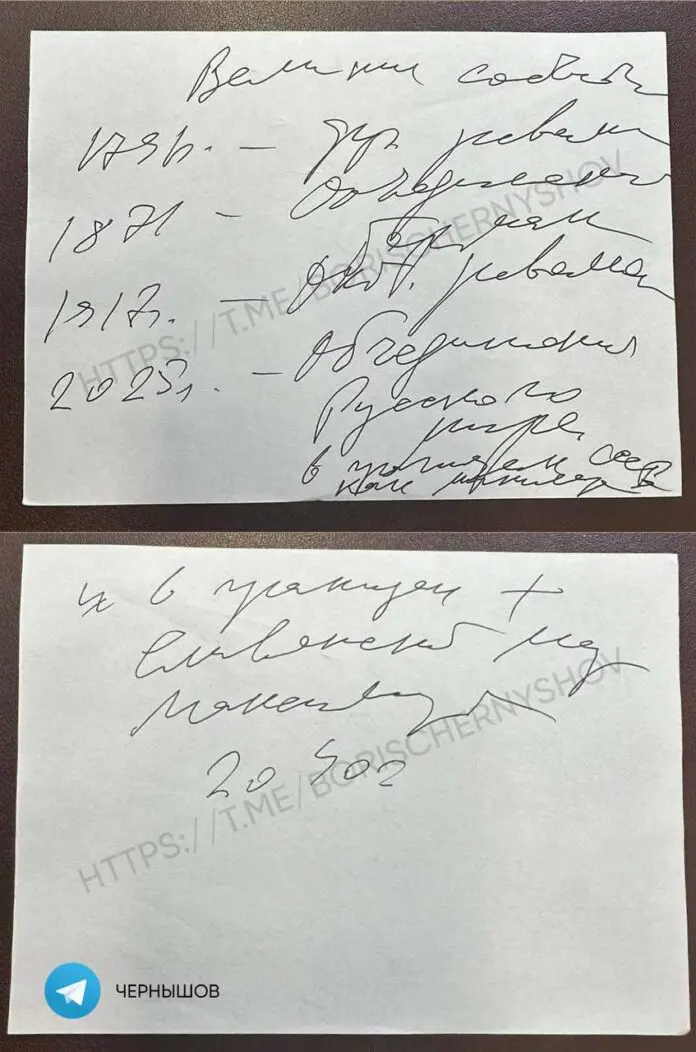 Великие события
179 г. — фр. револ
1871 — Объединение
Герман
1917г. — Окт. револ
202 г. — Объединения
Русского
мира
в границах СССР
как минимум
в границах +
Славянский
Максимум
20 г
HTTPS://T.ME/BORISCHERNYSHOV
HTTPS://T.ME/BORISCHERNYSHOV
ЧЕРНЫШОВ